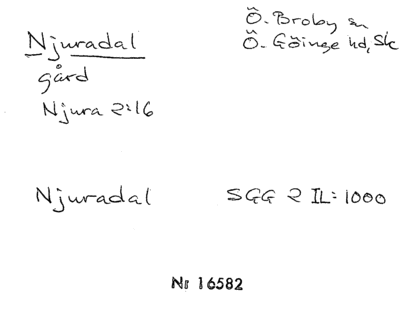 Njuradal
Ö. Broby sn
Ö. Göinge hd, Sk
gård
Njura 2:16
Njuradal SGG 2 IL: 1000
Nr 16582